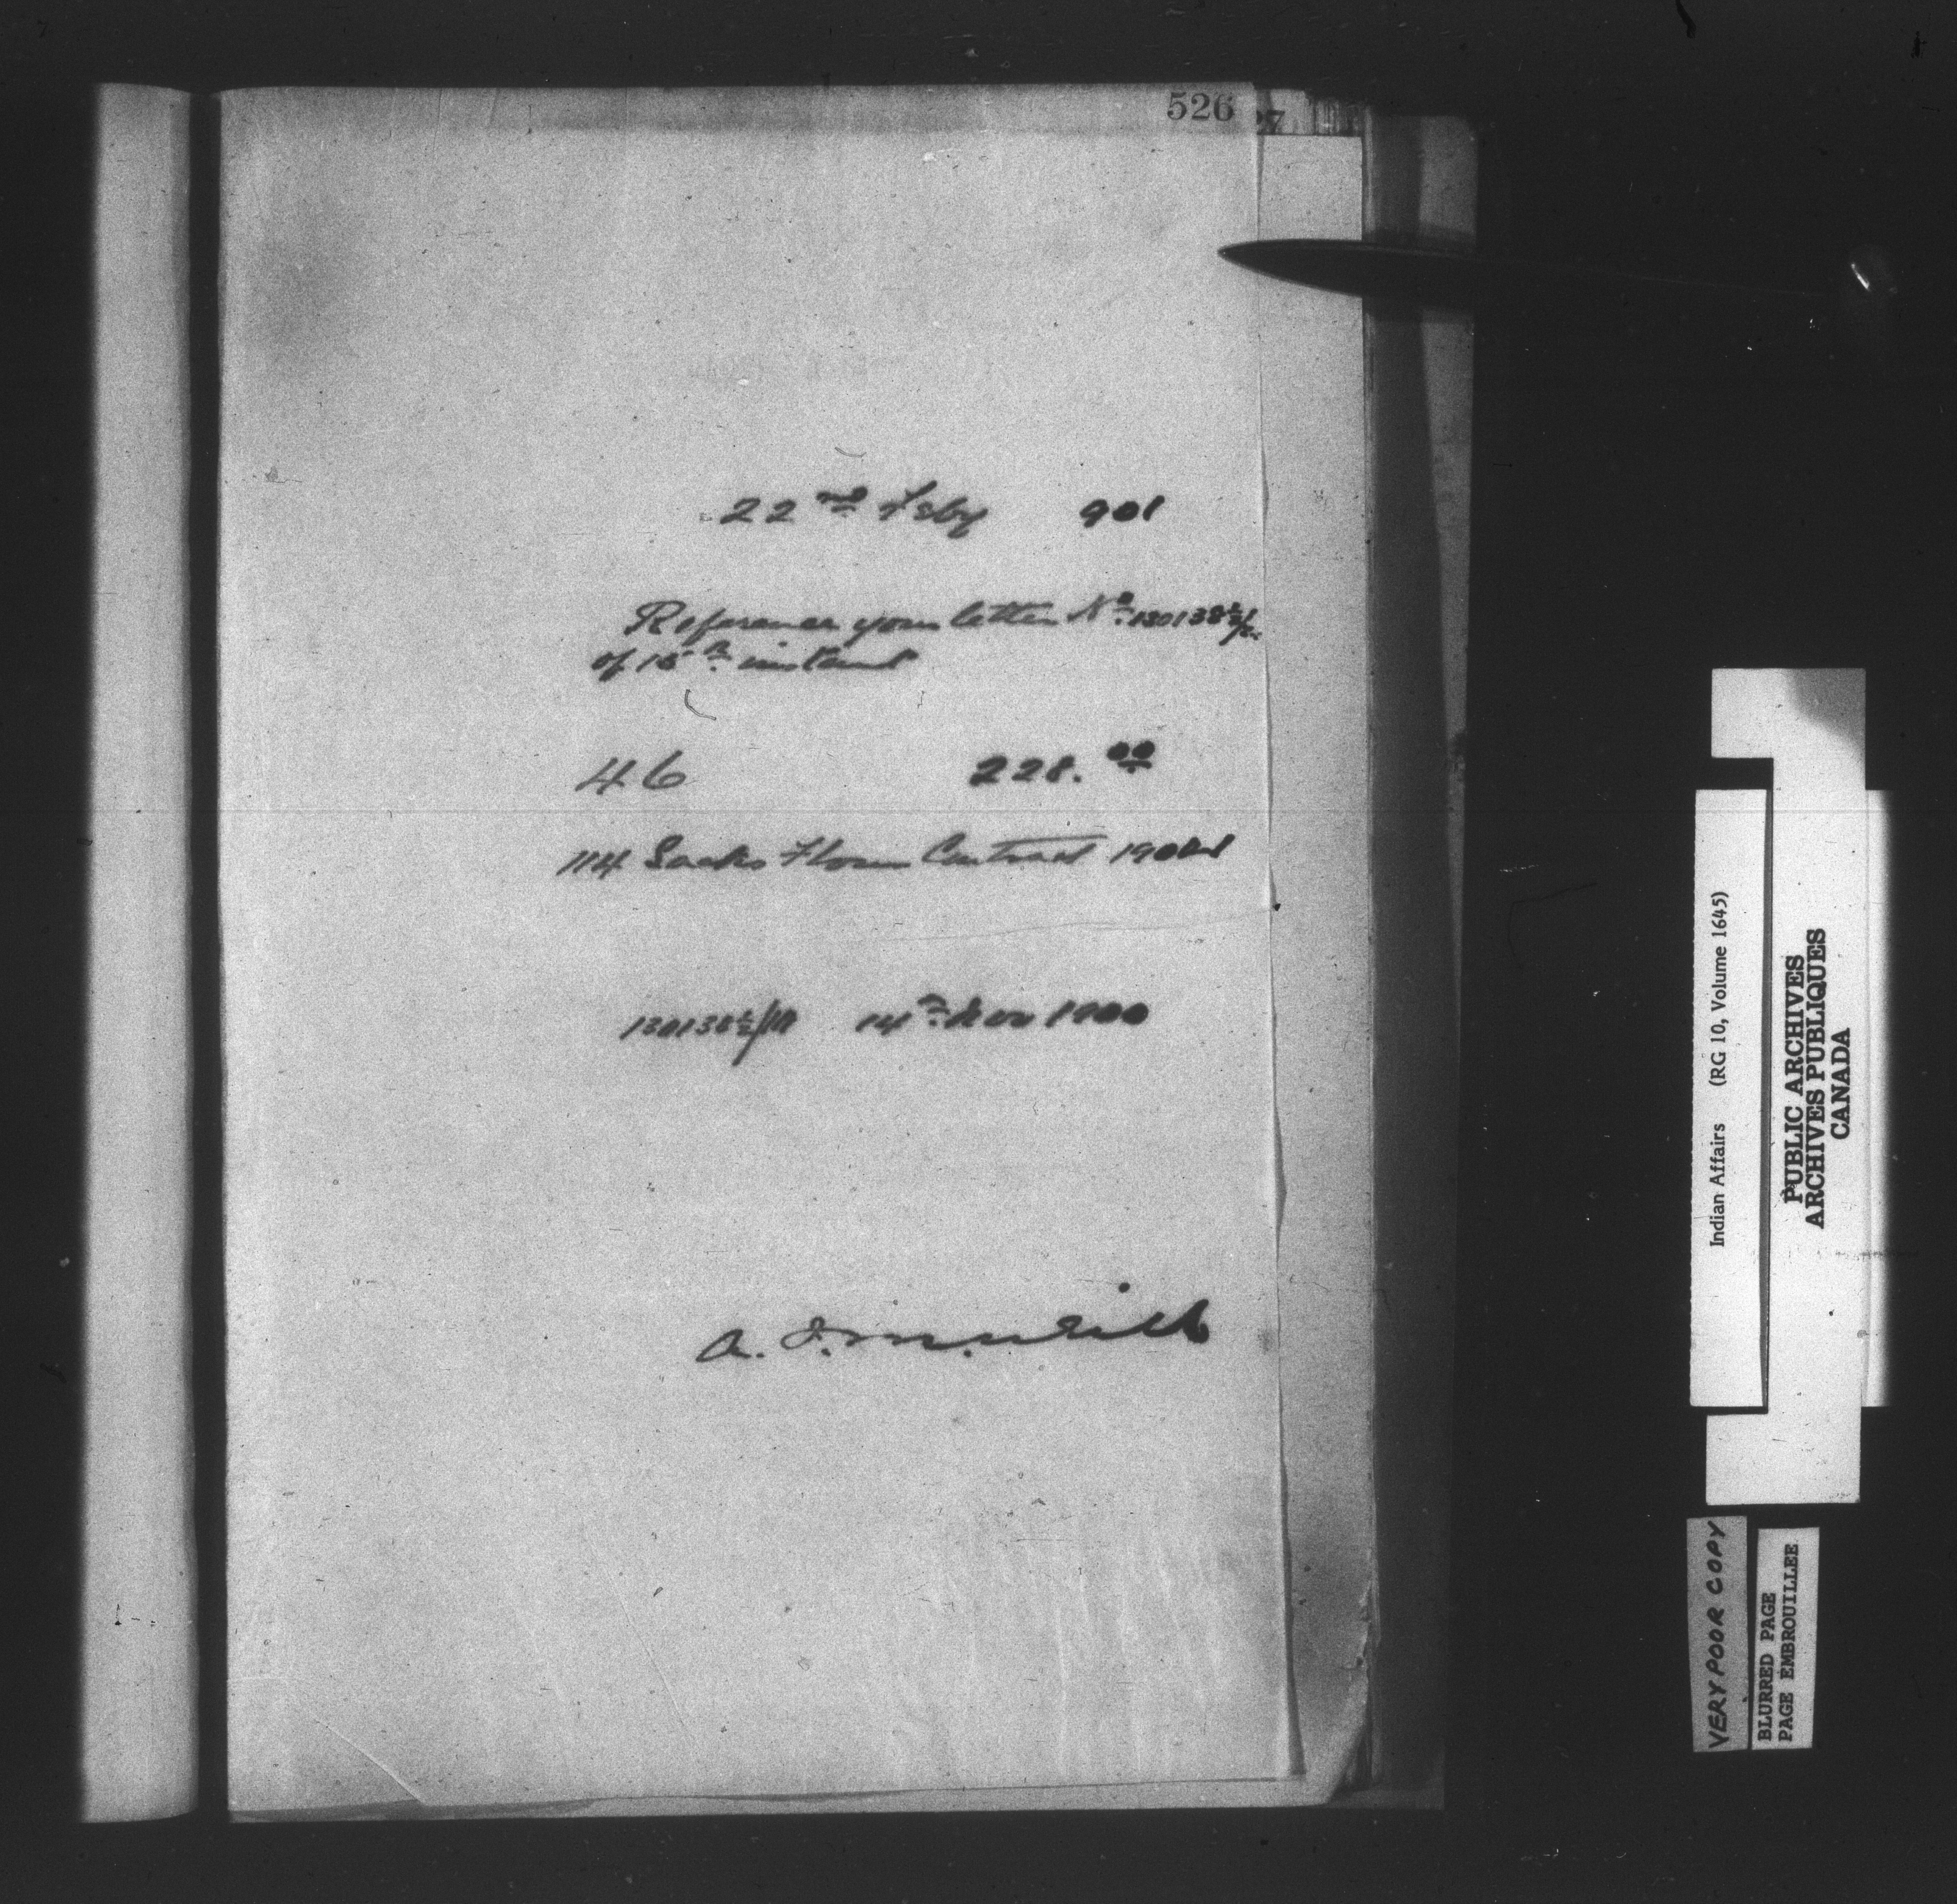 526
27
22nd Feby 901
Reference your letter No. 130138½/
of 15th instant
46 228.00
114 Sacks Flour Contract 1900
130138½/ 14th Nov 1900
A.
Indian Affairs (RG 10, Volume 1645)
PUBLIC ARCHIVES
ARCHIVES PUBLIQUES
CANADA
VERY POOR COPY
BLURRED PAGE
PAGE EMBROUILLEE